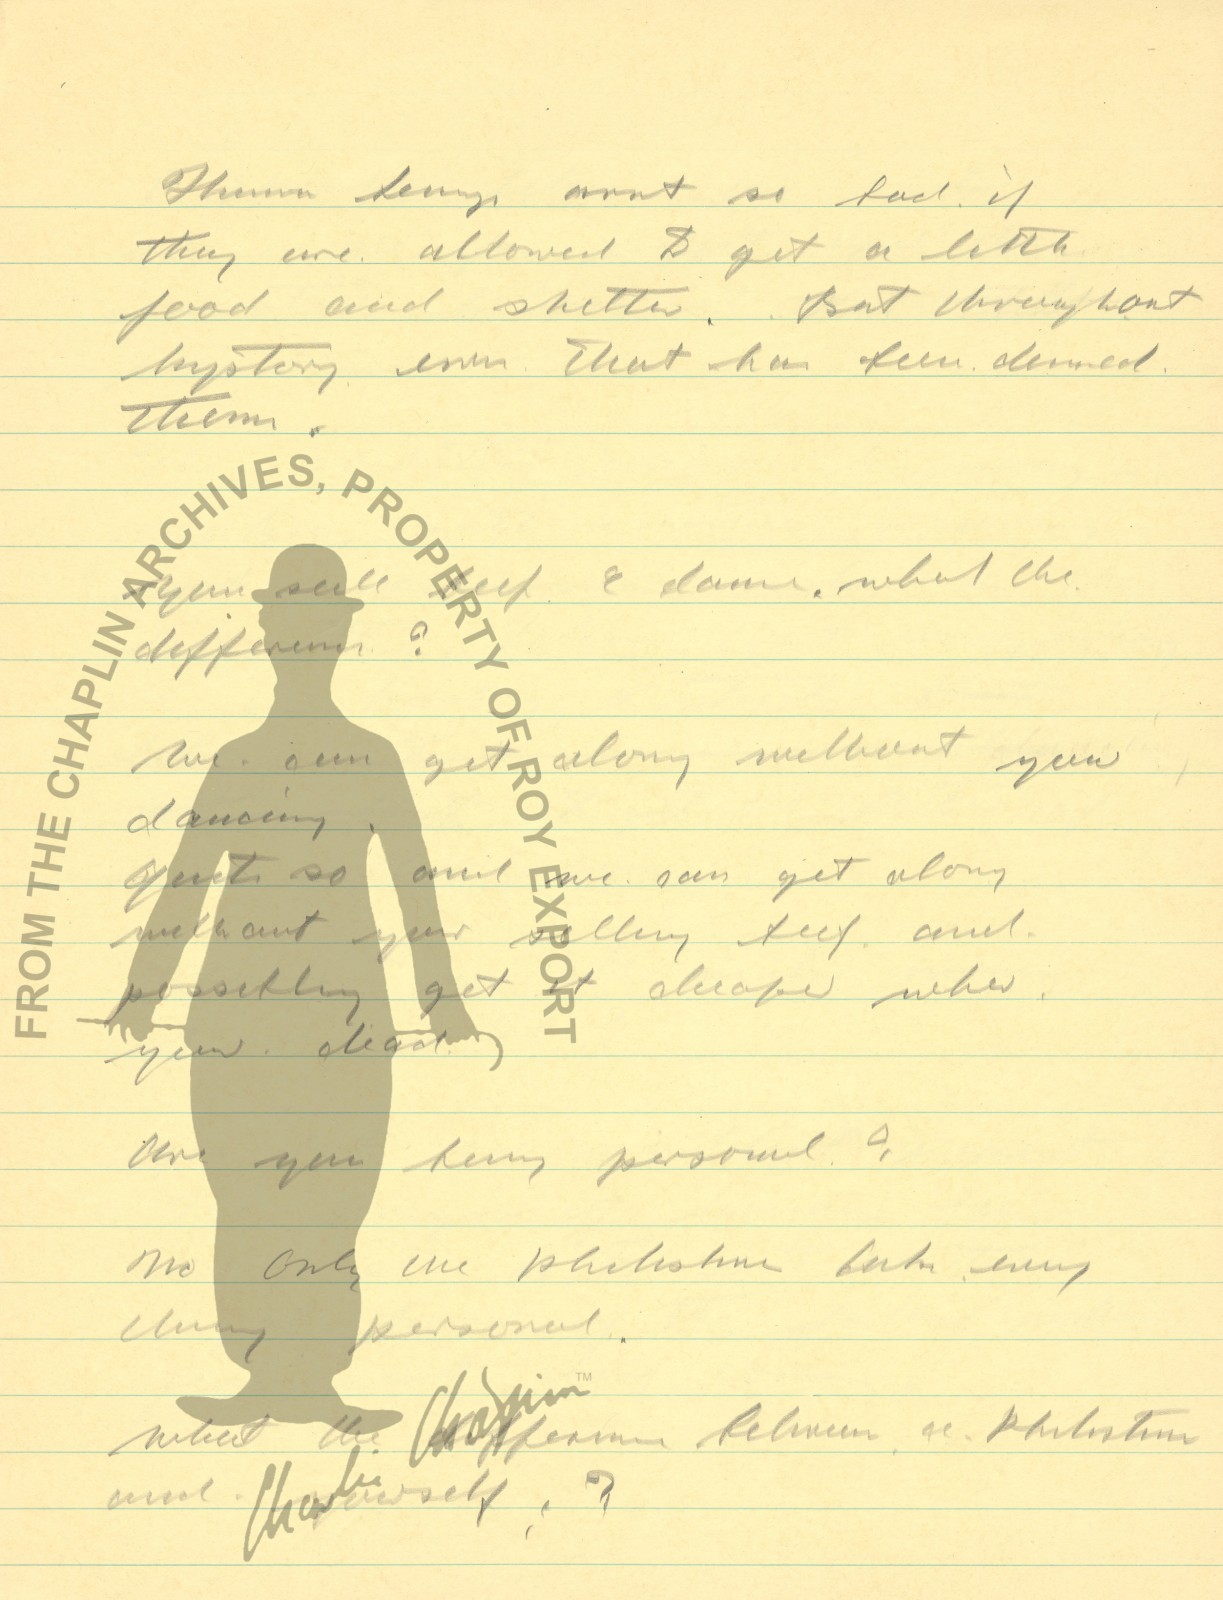 Human beings arnt so bad if
they are allowed to get a little
food and shelter. But throughout
hystory even that has been denied
them.
FROM THE CHAPLIN ARCHIVES, PROPERTY OF ROY EXPORT
You sell beef I dance, what the
difference?
We can get along without you
dancing.
Quite so and we can get along
without your selling beef and
possibly get it cheaper when
your dead.
Are you being personal?
No only the philistine take every
thing personal.
what the difference between a philistine
and yourself?
Charlie Chaplin™